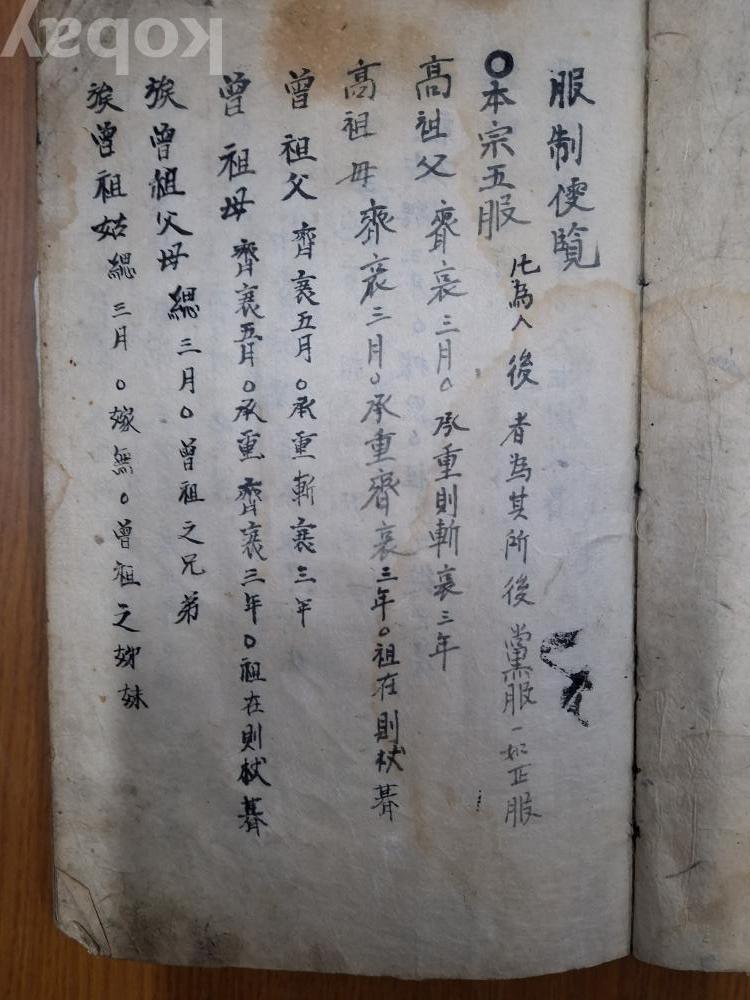 服制便覽
○本宗五服 凡為人後者為其所後黨服一如正服
高祖父 齊衰三月○承重則斬衰三年
高祖母 齊衰三月○承重齊衰三年○祖在則杖朞
曾祖父 齊衰五月○承重斬衰三年
曾祖母 齊衰五月○承重齊衰三年○祖在則杖朞
族曾祖父母 緦三月○曾祖之兄弟
族曾祖姑 緦三月○嫁無○曾祖之姊妹
kobay